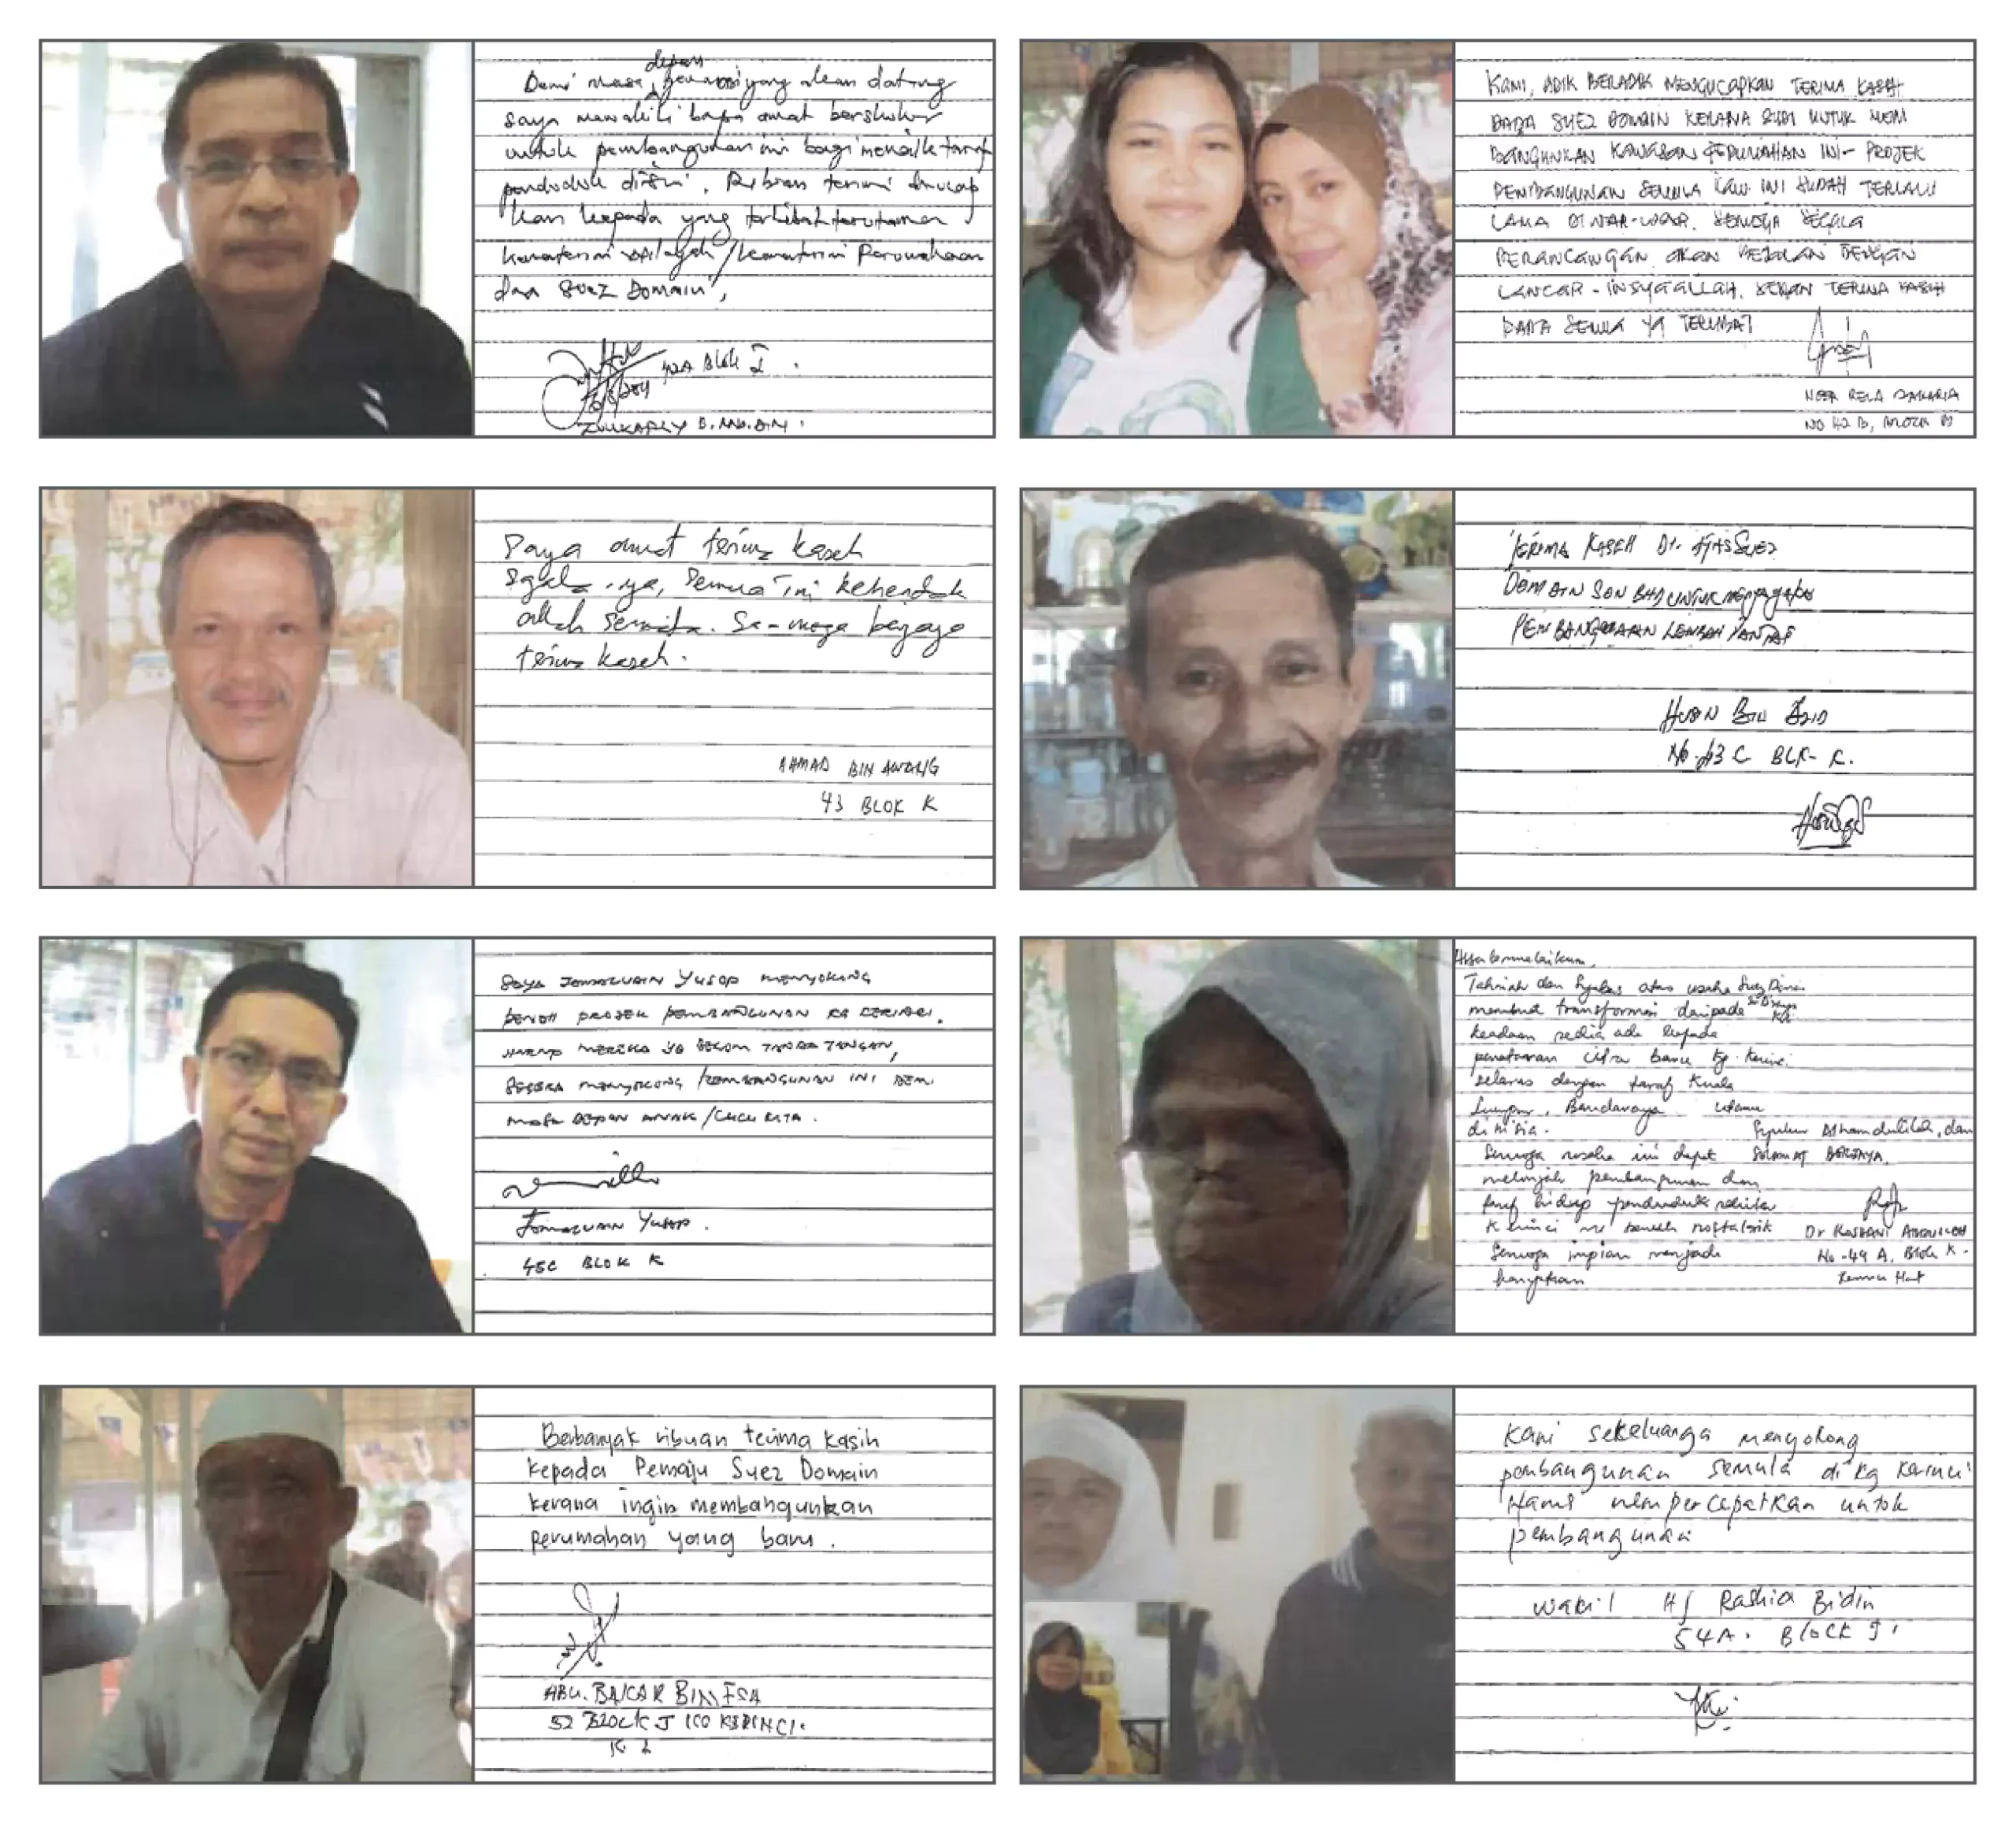 depan
Demi masa generasi yang akan datang
saya mewakili bapa amat bershukur
untuk pembangunan ini bagi menaik taraf
penduduk disini. Ribuan terima di ucap
kan kepada yang terlibat terutama
kementerian wilayah/kementerian Perumahan
dan Suez Domain,
42A Blok I.
KAMI, ADIK BERADIK MENGUCAPKAN TERIMA KASEH
PADA SUEZ DOMAIN KERANA SUDI UNTUK MEM
BANGUNKAN KAWASAN PERUMAHAN INI - PROJEK
PEMBANGUNAN SEMULA KAW. INI SUDAH TERLALU
LAMA DI WAR-WAR. SEMOGA SEGALA
PERANCANGAN AKAN BEJALAN DENGAN
LANCAR - INSYAALLAH. SEKIAN TERIMA KASIH
PADA SEMUA YG TERLIBAT
NO 42 B,
Saya amat terima kaseh
Sgala.ya, Semua ini kehendak
allah Semata. Se-moga berjaya
terima kaseh.
AHMAD BIN AWANG
43 BLOK K
TERIMA KASEH DI ATAS SUEZ
DOMAIN SDN BHD UNTUK
PEMBANGUNAN LEMBAH PANTAI
No. 43 C BLK- K.
SAYA JOMAZUAIN YUSOP MENYOKONG
PENOH PROJEK PEMBANGUNAN KG KERINCI.
HARAP MEREKA YG BELOM TANDA TANGAN,
SEGERA MENYOKONG PEMBANGUNAN INI DEMI
MASA DEPAN ANAK/CUCU KITA.
JOMAZUAIN YUSOP.
45C BLOK K
Assalammualaikum,
Tahniah dan Syabas atas usaha Suez Domain
membuat transformasi daripada
keadaan sedia ada kepada
penataran citra baru Kg. Kerinci
selaras dengan taraf Kuala
Lumpur, Bandaraya utama
di M'sia. Syukur Alhamdulilah, dan
Semoga usaha ini dapat SELAMAT BERJAYA.
melonjak pembangunan dan
taraf hidup penduduk sekitar
Kerinci
Semoga impian menjadi
kenyataan
No -49 A, Blok K.
Berbanyak ribuan terima kasih
kepada Pemaju Suez Domain
kerana ingin membangunkan
perumahan yang baru.
ABU. BAKAR BIN ISA
52 BLOCK J KERINCI.
K L
Kami sekeluarga menyokong
pembangunan semula di kg Kerinci
Harus mempercepatkan untok
pembangunan
wakil Hj Rashid Bidin
54A. BLOCK J.